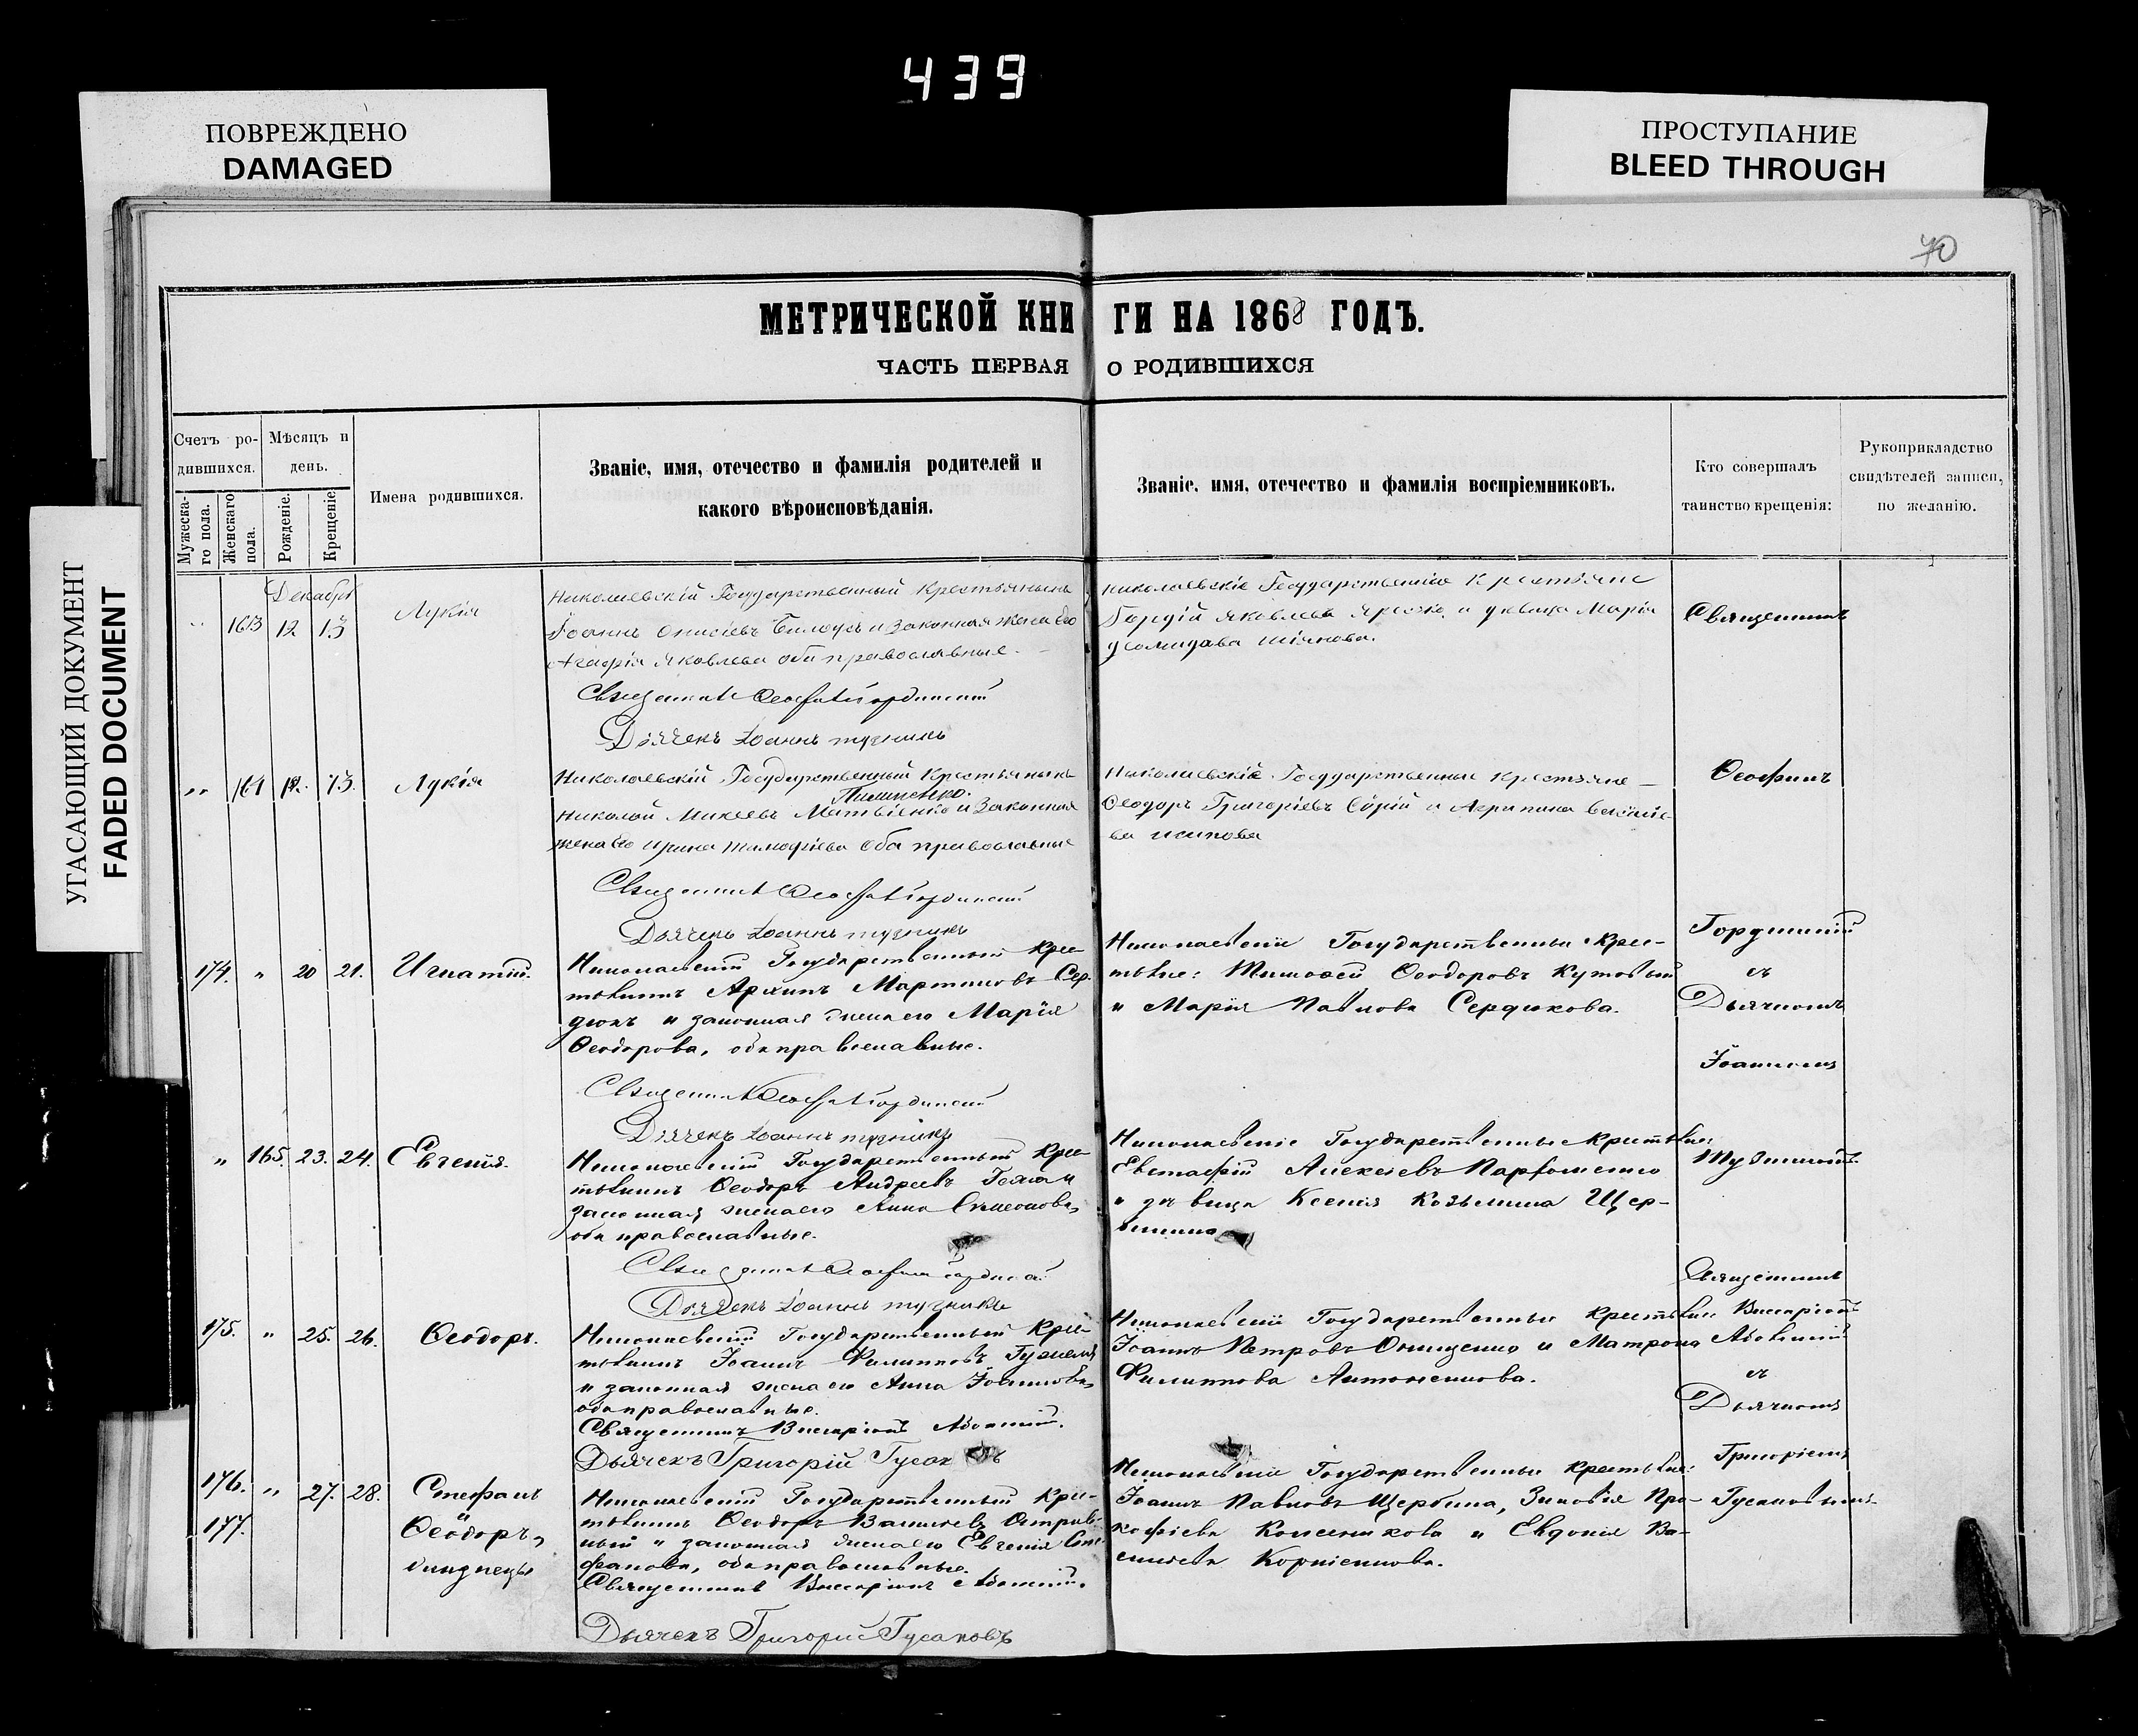 439
ПОВРЕЖДЕНО
DAMAGED
ПРОСТУПАНИЕ
BLEED THROUGH
УГАСАЮЩИЙ ДОКУМЕНТ
FADED DOCUMENT
70
МЕТРИЧЕСКОЙ КНИ ГИ НА 1868 ГОДЪ.
ЧАСТЬ ПЕРВАЯ О РОДИВШИХСЯ
Счетъ ро-
дившихся.
Мѣсяцъ и
день.
Мужеска-
го пола.
Женскаго
пола.
Рожденіе.
Крещеніе.
Имена родившихся.
Званіе, имя, отечество и фамилія родителей и
какого вѣроисповѣданія.
Званіе, имя, отечество и фамилія воспріемниковъ.
Кто совершалъ
таинство крещенія:
Рукоприкладство
свидѣтелей записи,
по желанію.
Декабрь
" 163 12 13 Лукія
Николаевскій Государственный Крестьянинъ
Іоаннъ Онисіевъ Билоусъ и Законная жена Его
Агафія Яковлева оба православные.
Николаевскіе Государственные Крестьяне
Гордій Яковлевъ и девица Марія
Священникъ
Дьячекъ Іоаннъ
" 164 12. 13. Лукія
Николаевскій Государственный Крестьянинъ
Николай Микеевъ Матвіенко и Законная
жена Его Ирина Тимофіева Оба православные
Николаевскіе Государственные Крестьяне
Феодоръ Григоріевъ и Агрипина
Феофанъ
Дьячекъ Іоаннъ
174. " 20 21. Игнатій.
Николаевскій Государственный Кре-
стьянинъ Архипъ Мартиновъ Сер-
дюкъ и законная жена его Марія
Феодорова, оба православные.
Николаевскіе Государственные Кре-
стьяне: Тимофей Феодоровъ Кутовый
и Марія Павлова Сердюкова.
съ
Дьячкомъ
Іоанномъ
Дьячекъ Іоаннъ
" 165. 23. 24. Евгенія.
Николаевскій Государственный Кре-
стьянинъ Феодоръ Андреевъ и
законная жена его Анна Симеонова,
оба православные.
Николаевскіе Государственные Крестьяне:
Евстафій Алексѣевъ Парфоменко
и дѣвица Ксенія Козьмина Щер-
бинина
Дьячекъ Іоаннъ
175. " 25. 26. Феодоръ.
Николаевскій Государственный Кре-
стьянинъ Іоаннъ Филипповъ
и законная жена его Анна Іоаннова,
оба православные.
Священникъ Виссаріонъ
Дьячекъ Григорій Гусаковъ
Николаевскіе Государственные Крестьяне:
Іоаннъ Петровъ Онищенко и Матрона
Филиппова Антоненкова.
Священникъ
Виссаріонъ
съ
Дьячкомъ
Григоріемъ
Гусаковымъ.
176. " 27. 28. Стефанъ
177. и
Феодоръ,
близнецы
Николаевскій Государственный Кре-
стьянинъ Феодоръ Васильевъ
и законная жена его Евгенія Сте-
фанова, оба православные.
Священникъ Виссаріонъ
Дьячекъ Григорій Гусаковъ
Николаевскіе Государственные Крестьяне:
Іоаннъ Павловъ Щербина, Зиновія Про-
кофіева и Евдокія Ва-
сильева Корніенкова.